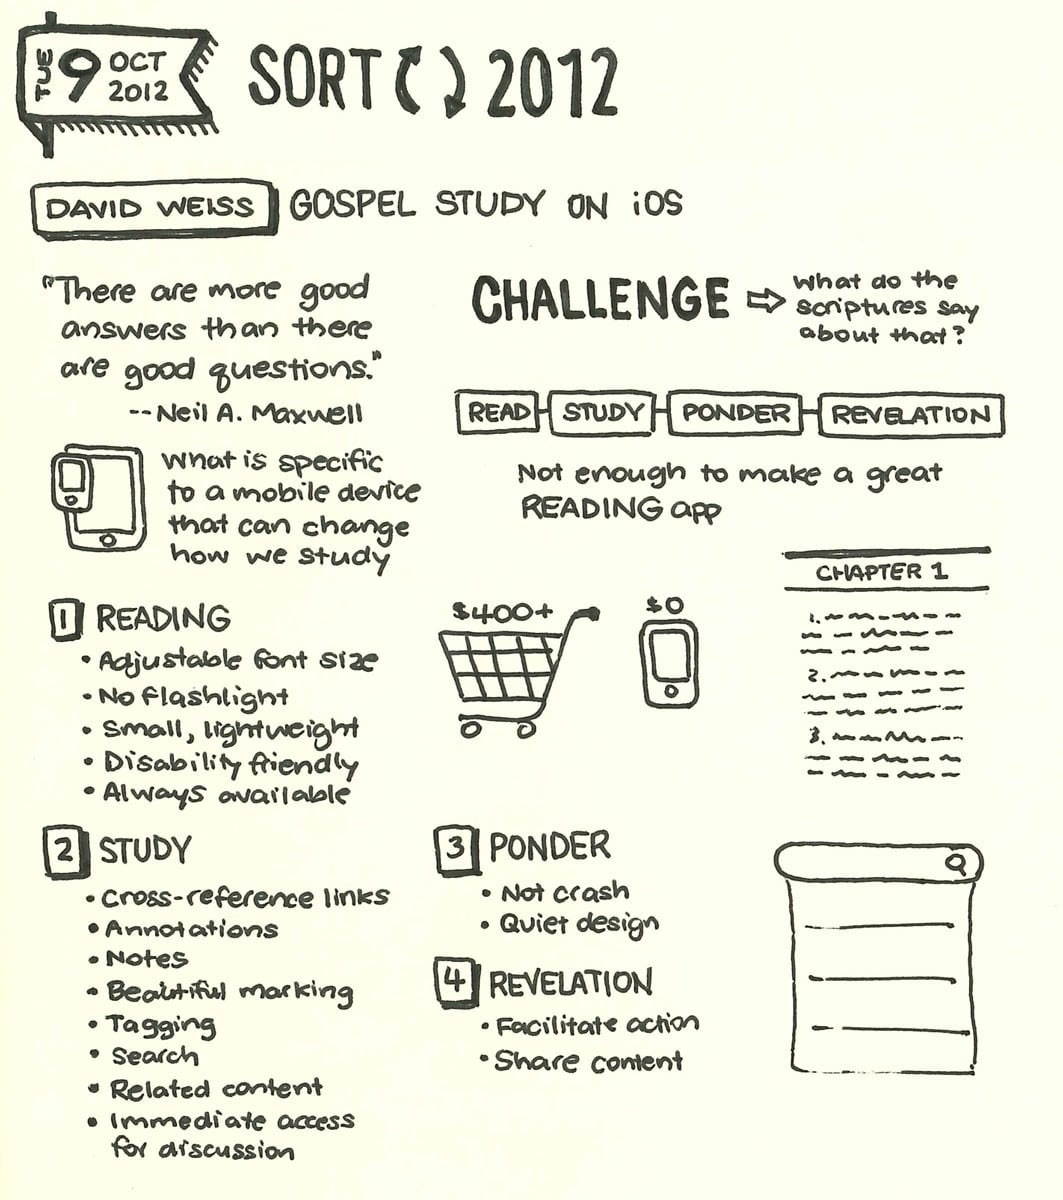 TUE 9 OCT 2012
SORT 2012
DAVID WEISS GOSPEL STUDY ON iOS
"There are more good
answers than there
are good questions."
--Neil A. Maxwell
What is specific
to a mobile device
that can change
how we study
CHALLENGE ⇨ What do the
scriptures say
about that?
READ STUDY PONDER REVELATION
Not enough to make a great
READING app
1 READING
• Adjustable font size
• No flashlight
• Small, lightweight
• Disability friendly
• Always available
$400+
$0
CHAPTER 1
1.
2.
3.
2 STUDY
• Cross-reference links
• Annotations
• Notes
• Beautiful marking
• Tagging
• Search
• Related content
• Immediate access
for discussion
3 PONDER
• Not crash
• Quiet design
4 REVELATION
• Facilitate action
• Share content